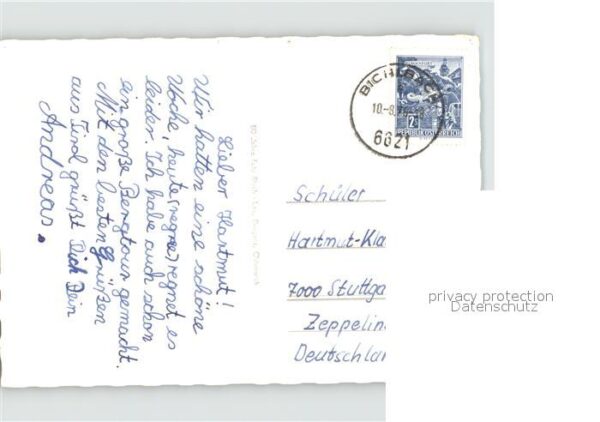 Lieber Hartmut!
Wir hatten eine schöne
Woche, heute regnet es
leider. Ich habe auch schon
ein große Bergtour gemacht.
Mit den besten Grüßen
aus Tirol grüßt Dich Dein
Andreas.
BICHLBACH
10.-8.
6621
2
REPUBLIK ÖSTERREICH
Schüler
Hartmut-Kla
7000 Stuttga
Zeppelin
Deutschlan
privacy protection
Datenschutz